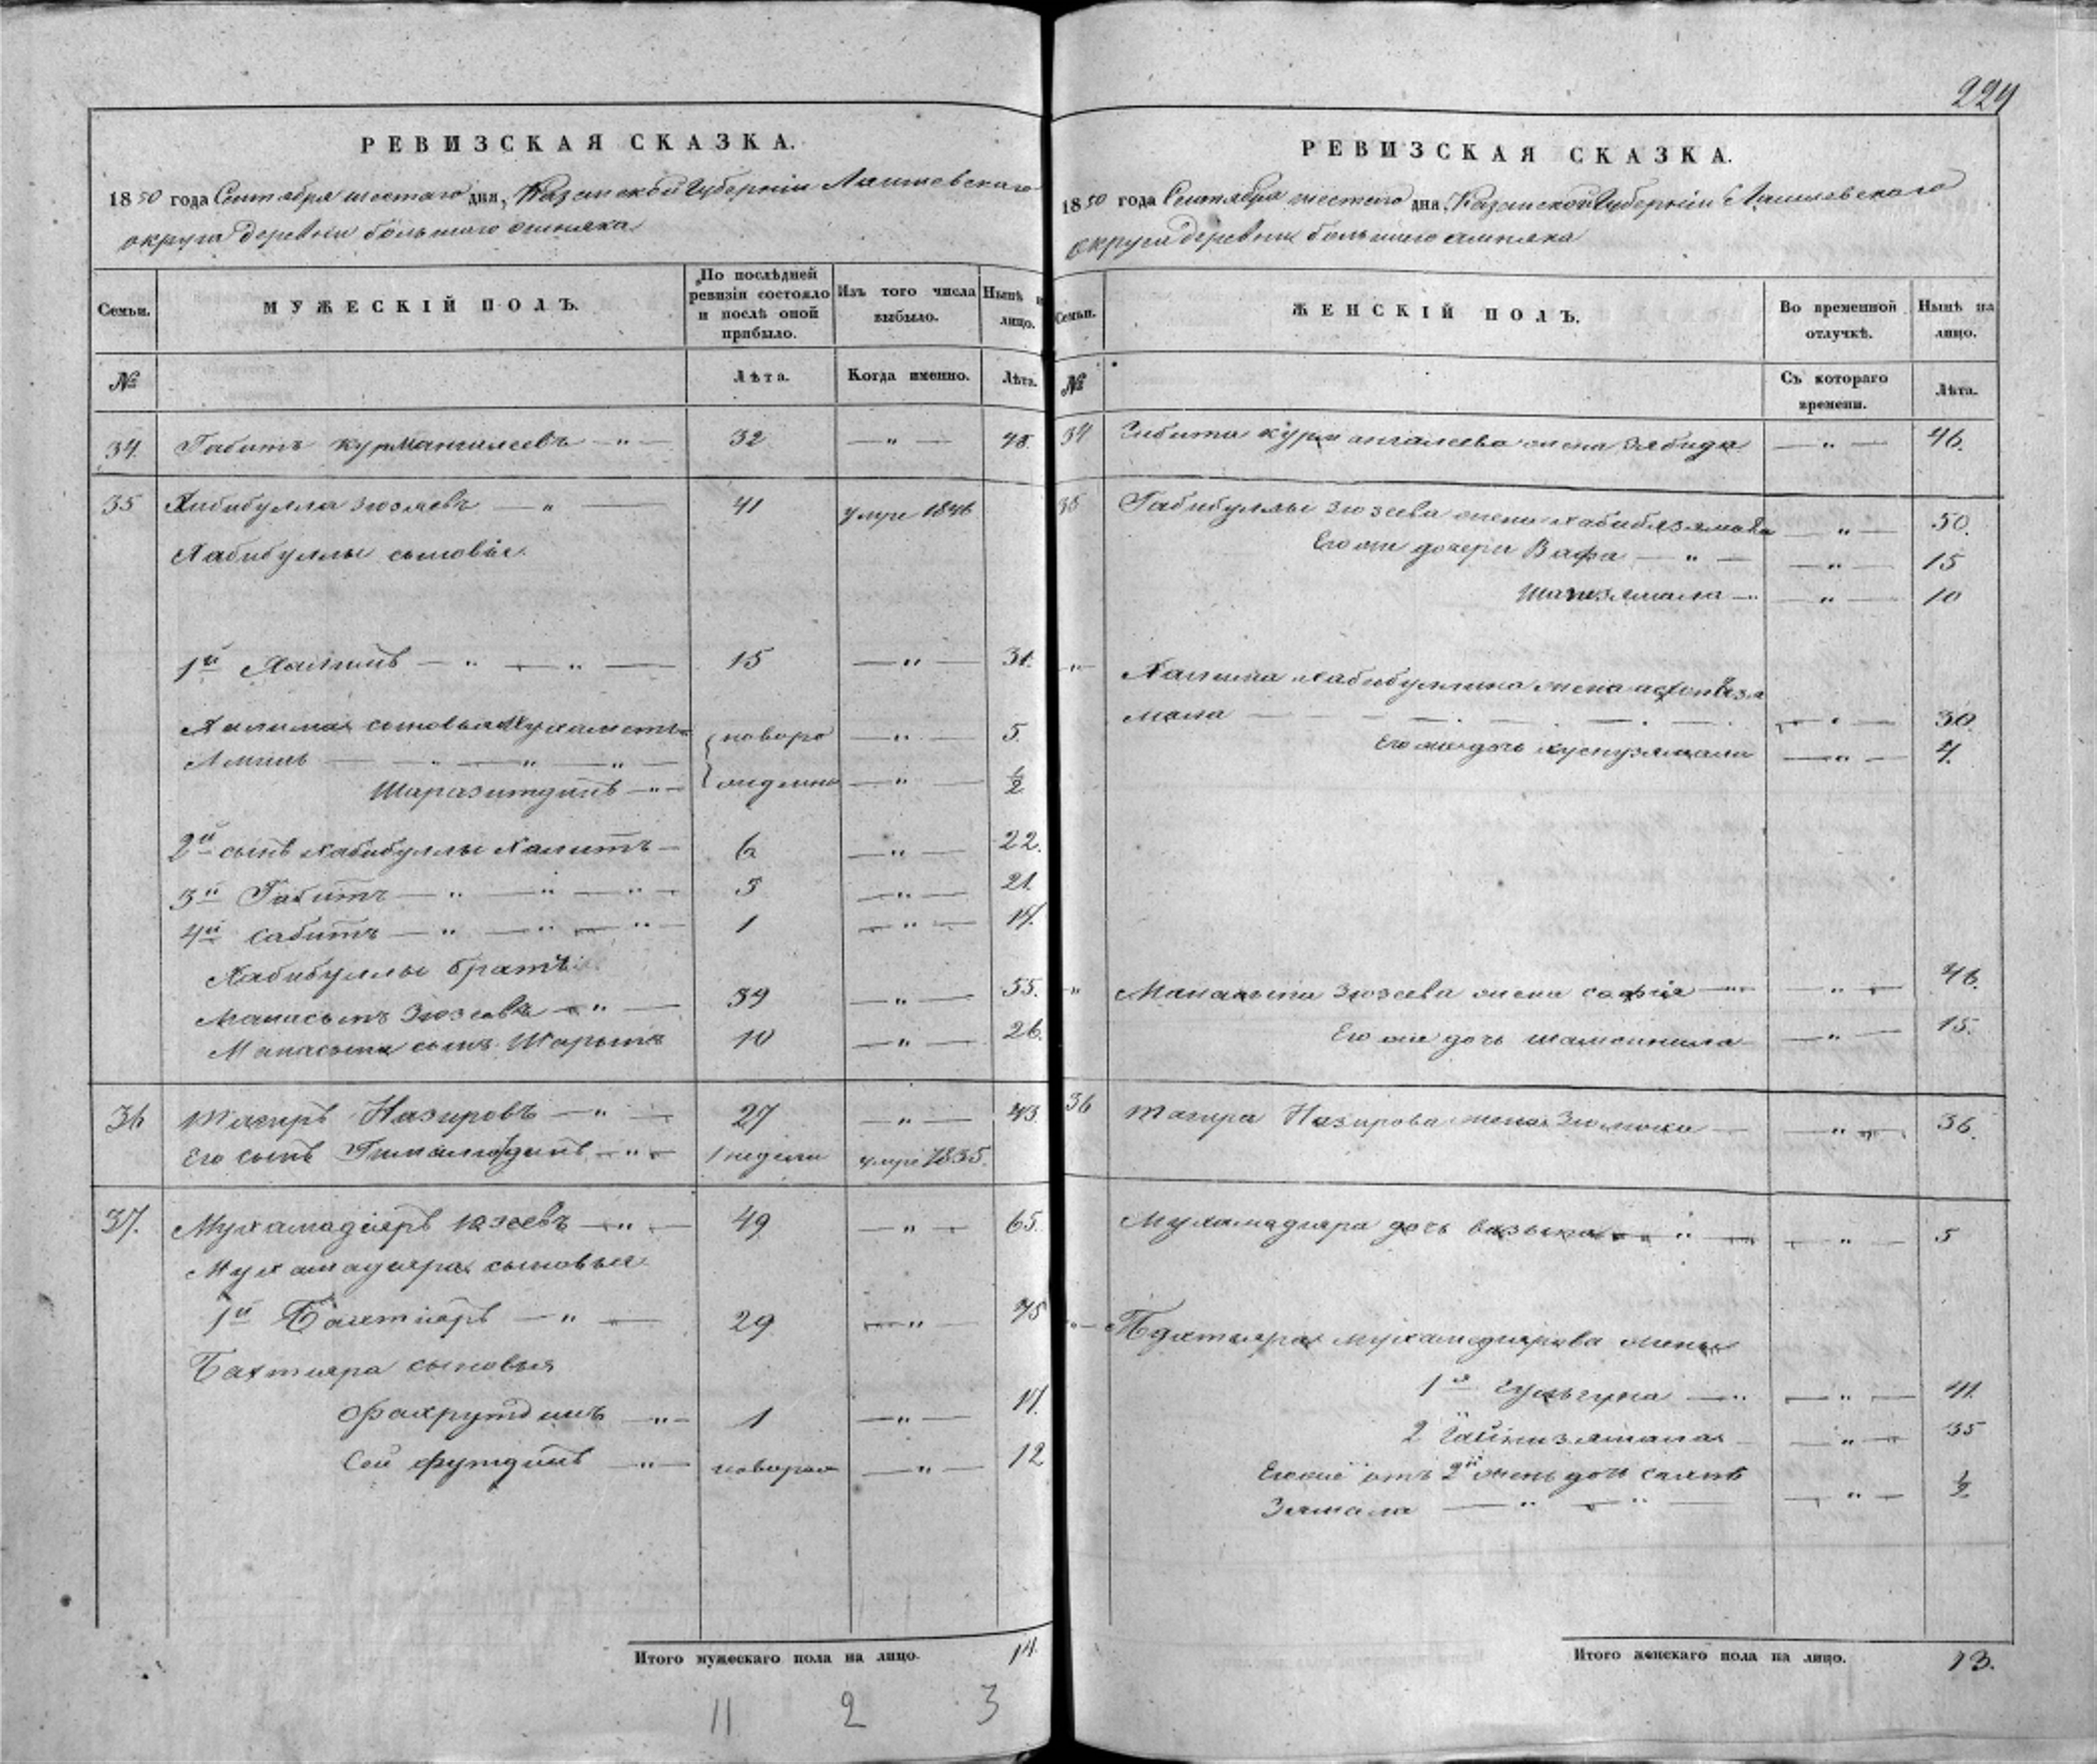 224
РЕВИЗСКАЯ СКАЗКА.
1850 года Сентября шестаго дня, Казанской Губернiи Лаишевскаго
округа деревни большаго
Семьи.
МУЖЕСКІЙ ПОЛЪ.
По послѣдней ревизіи состояло и послѣ оной прибыло.
Изъ того числа выбыло.
Нынѣ лицо.
№
Лѣта.
Когда именно.
Лѣта.
34. Габитъ Курмангалеевъ — " — 32 — " — 48.
35 Хабибулла Зюзеевъ — " — 41 умре 1846
Хабибуллы сыновiя.
1й Халимъ — " — " — 15 — " — 31.
Халима сыновья Мухаметъ
Аминъ — " — " — новоро — " — 5.
Шаразитдинъ — " — жденны — " — ½
2й сынъ Хабибуллы Халитъ — 6 — " — 22.
3й Габитъ — " — " — " — 5 — " — 21.
4й Сабитъ — " — " — " — 1 — " — 17.
Хабибуллы братъ
Манасыпъ Зюзеевъ — " — 39 — " — 55.
Манасыпа сынъ Шарыпъ 10 — " — 26.
36 Тагиръ Назировъ — " — 27 — " — 43.
Его сынъ — " — 1 недели умре 1835.
37. Мухамадiяръ — " — 49 — " — 65.
Мухамадияра сыновья
1й Бахтiяръ — " — 29 — " — 45
Бахтияра сыновья
Фахрутдинъ — " — 1 — " — 17.
Сейфутдинъ — " — новорож — " — 12
Итого мужескаго пола на лицо. 14.
11 2 3
РЕВИЗСКАЯ СКАЗКА.
1850 года Сентября шестаго дня, Казанской Губернiи Лаишевскаго
округа деревни большаго
Семьи.
ЖЕНСКІЙ ПОЛЪ.
Во временной отлучкѣ.
Нынѣ на лицо.
№
Съ котораго времени.
Лѣта.
34 Габита Курмангалеева жена Зябида — " — 46.
35 Габибуллы Зюзеева жена Хабибязямала — " — 50.
Его же дочери Вафа — " — — " — 15
— " — 10
" Халима Хабибуллина жена
мала — " — 30.
Его же дочь — " — 4.
" Манасыпа Зюзеева жена Сафiя — " — — " — 46.
Его же дочь — " — 15.
36 Тагира Назирова жена — " — 36.
Мухамадияра дочь — " — — " — 5
" Бахтияра Мухамедиярова жены
1я — " — — " — 41.
2 — " — 35
Его же отъ 2й жены дочь
Зямала — " — " — — " — ½
Итого женскаго пола на лицо. 13.